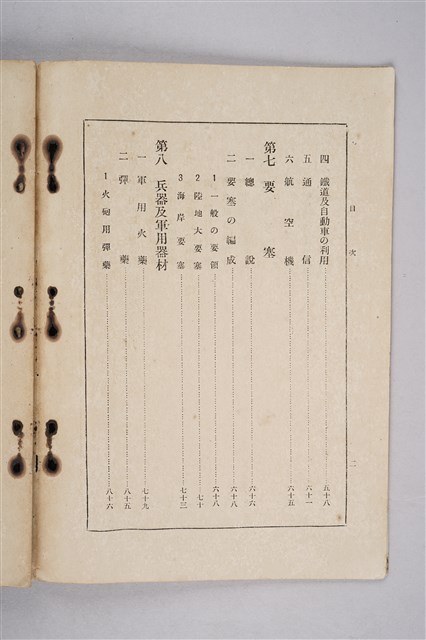 目次
二
四 鐵道及自動車の利用……五十八
五 通信……六十一
六 航空機……六十五
第七 要塞
一 總說……六十六
二 要塞の編成……六十八
1 一般の要領……六十八
2 陸地大要塞……七十
3 海岸要塞……七十三
第八 兵器及軍用器材
一 軍用火藥……七十九
二 彈藥……八十五
1 火砲用彈藥……八十六